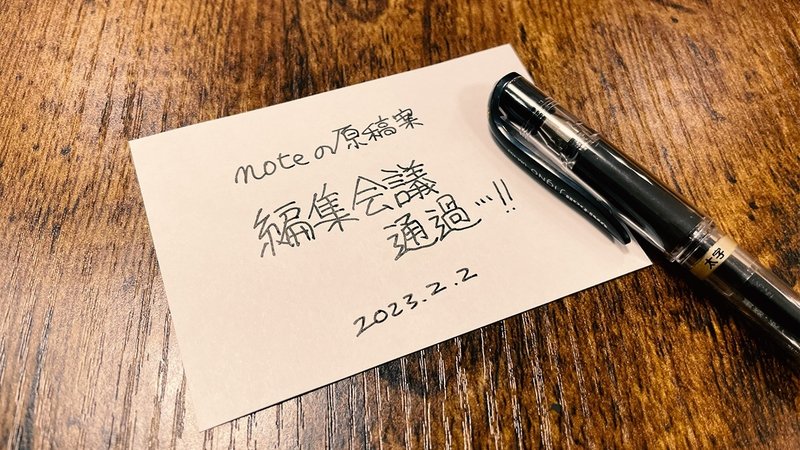 noteの原稿案
編集会議
通過…!!
2023.2.2
太字